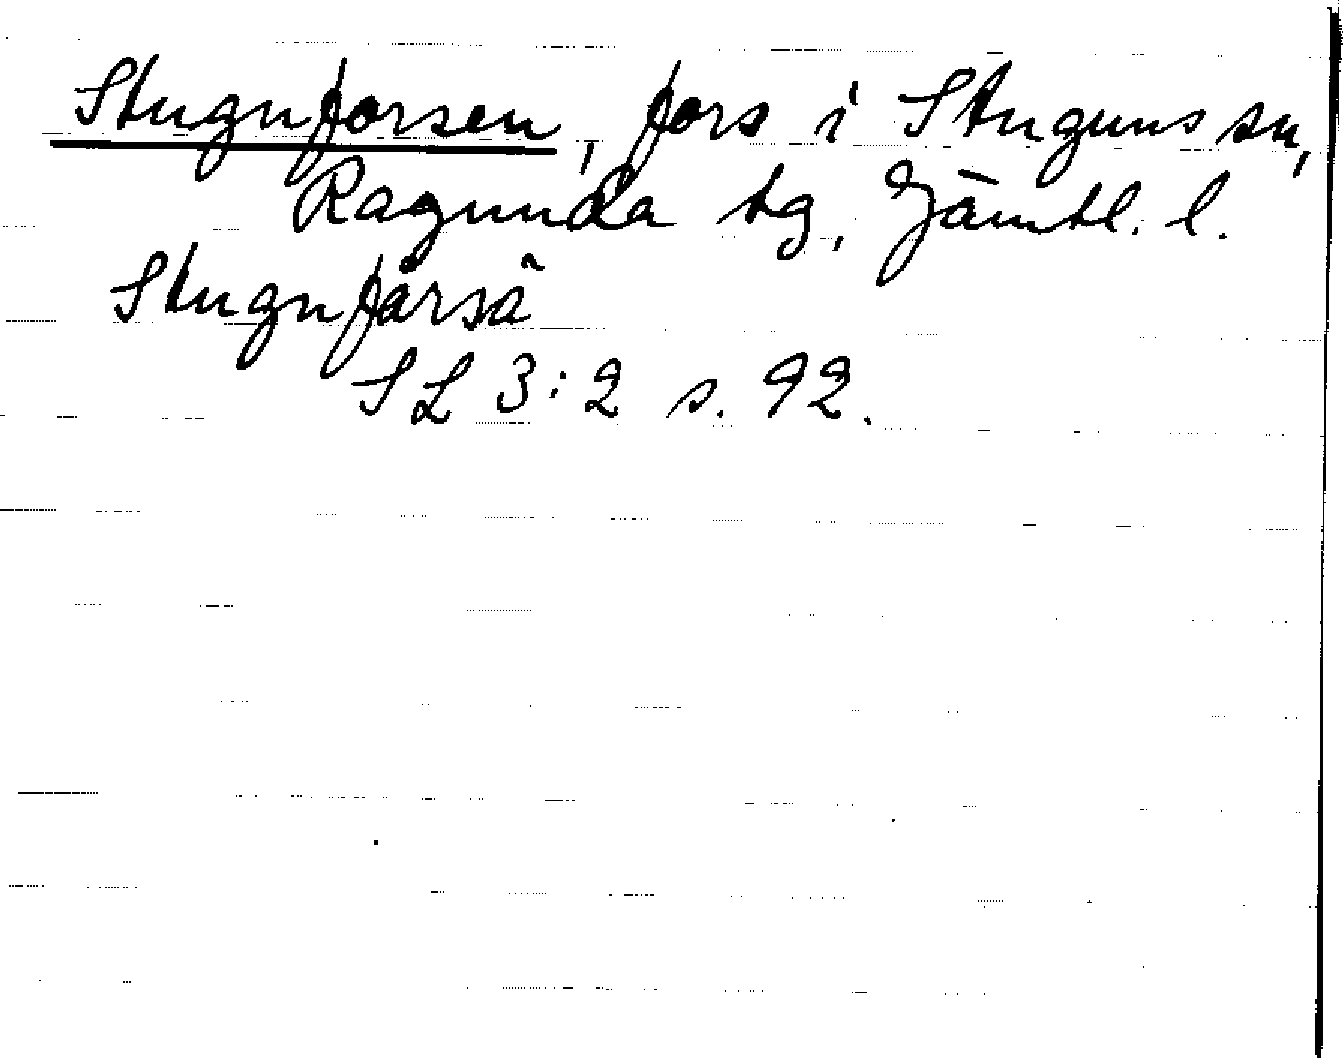 Stugnforsen, fors i Stuguns sn,
Ragunda tg, Jämtl. l.
Stugnfårsä
SL 3:2 s. 92.